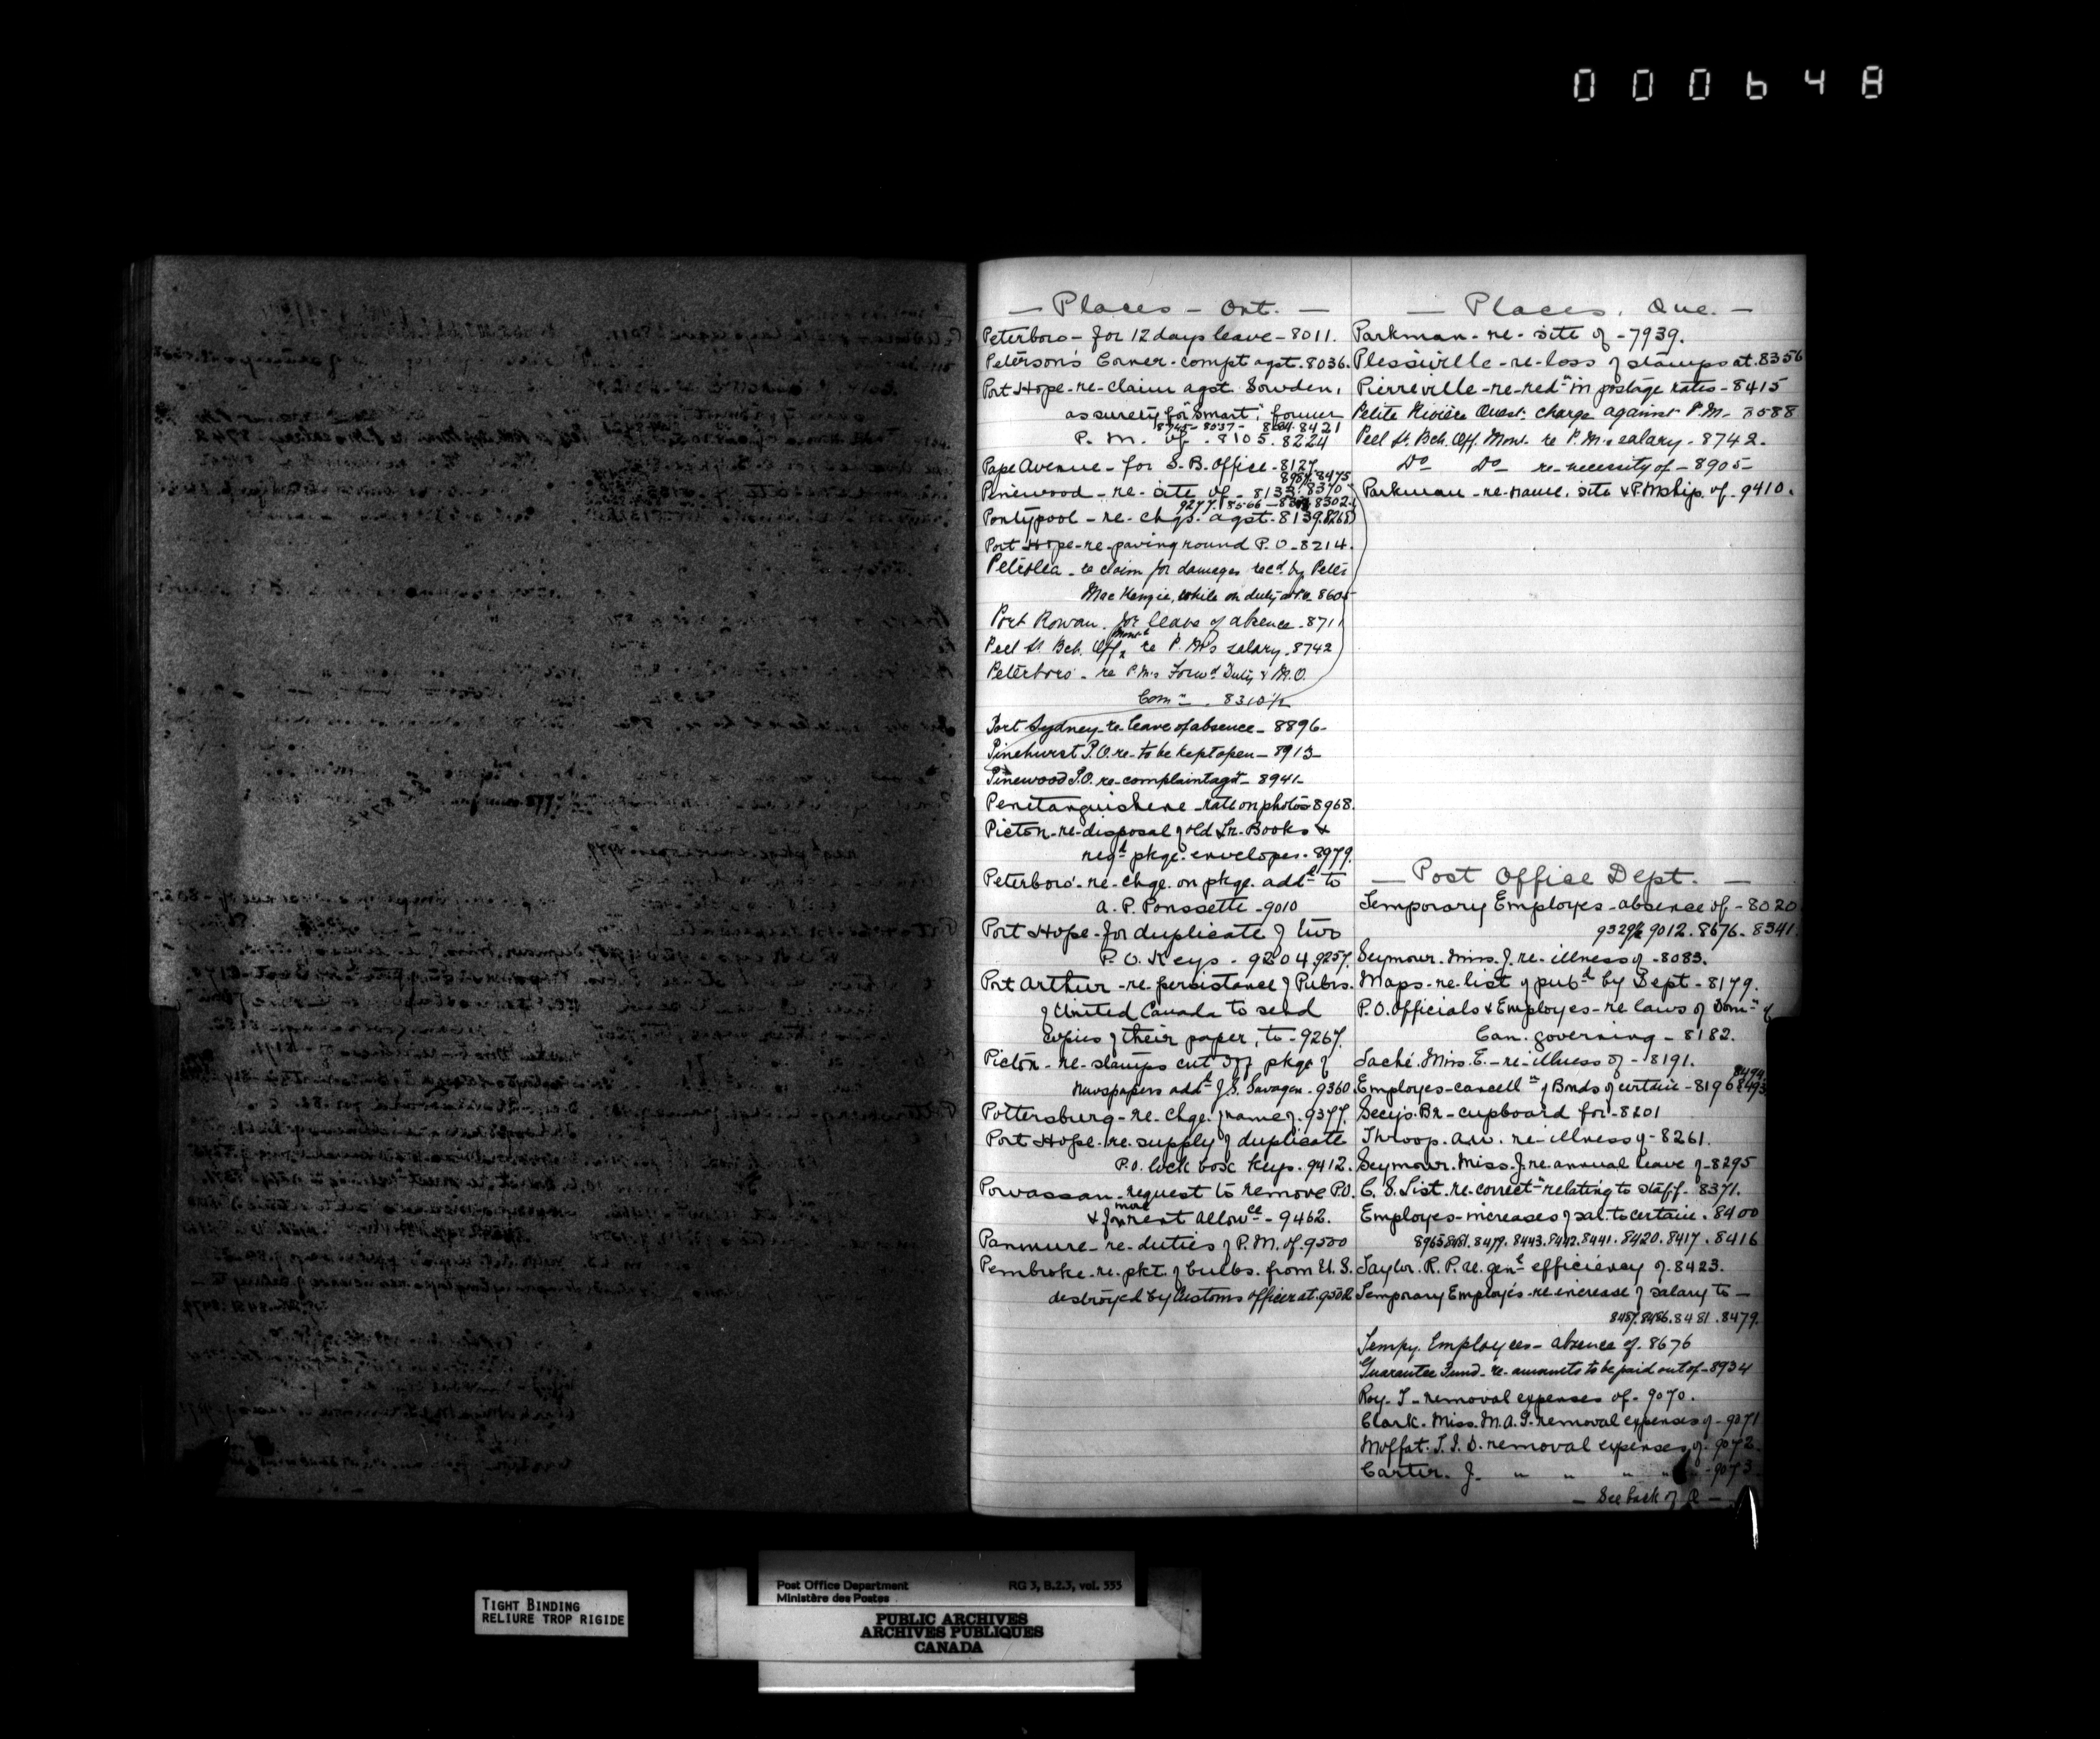 000648
— Places — Ont. —
Peterboro - for 12 days leave - 8011.
Peterson's Corner - compt agst. 8036.
Port Hope - re - claim agst. Sowden,
as surety for "Smart", former
8745 - 8037 - 8421
P. M. of . 8105. 8224
Pape Avenue - for S. B. Office - 8127
8475
Pinewood - re - site of - 8133. 8370
9277. 8566 - 8302
Pontypool - re - chgs. agst. 8139. 8268
Port Hope - re - paving round P. O - 8214.
Petrolea - re claim for damages recd by Peter
MacKenzie, while on duty at P.O. 8605
Port Rowan. for leave of absence. 8711
Peel St. Bch. Off. Montl re P. M's salary. 8742
Peterboro' - re P.M's Forwd Duty & M.O.
Comn . 8310½
Port Sydney - re leave of absence - 8896 -
Pinehurst P.O. re - to be kept open - 8913 -
Pinewood P.O. re - complaint agst - 8941 -
Penetanguishene - rate on photos 8968.
Picton - re - disposal of old Lr. Books &
regd pkge. envelopes. 8979.
Peterboro' - re - chge. on pkge. addd to
A. P. Poussette - 9010
Port Hope - for duplicate of two
P. O. Keys - 9204. 9257.
Port Arthur - re persistance of Pubrs.
of United Canada to send
copies of their paper, to - 9267.
Picton - re - stamps cut off pkge of
newspapers addd J. S. - 9360
Pottersburg - re. chge. of name of. 9377.
Port Hope - re. supply of duplicate
P.O. lock box keys. 9412.
Powassan - request to remove P.O.
& for more rent allowce - 9462.
Panmure - re - duties of P. M. of. 9500
Pembroke. re. pkt. of bulbs. from U. S.
destroyed by Customs officer at. 9502
— Places. Que. —
Parkman - re - site of - 7939.
Plessisville - re - loss of stamps at. 8356
Pierreville - re - redn in postage rates - 8415
Petite Rivière Ouest - charge against P. M - 8588
Peel St. Bch. Off. Mont. re P. M's salary. 8742.
Do Do re - necessity of - 8905 -
Parkman - re - name, site & P.Mship. of - 9410.
— Post Office Dept. —
Temporary Employes - absence of - 8020
9329½ 9012. 8676. 8341.
Seymour. Miss. J. re - illness of - 8083.
Maps - re - list of pubd by Dept - 8179.
P. O. Officials & Employes - re laws of Domn of
Can. governing - 8182.
Laché. Miss. E. - re - illness of - 8191.
8494
Employes - cancelln of Bonds of certain - 8196 8493
Secy's. Br - cupboard for - 8201
Throop. A.W. re - illness of - 8261.
Seymour. Miss. J. re. annual leave of - 8295
C. S. List - re. correctn relating to staff - 8371.
Employes - increases of sal. to certain. 8400
8965. 8481. 8479. 8443. 8442. 8441. 8420. 8417. 8416
Taylor. R. P. re. genl efficiency of. 8423.
Temporary Employés - re - increase of salary to —
8487. 8486. 8481. 8479.
Tempy. Employees - absence of. 8676
Guarantee Fund - re - amounts to be paid out of - 8934
Roy. J - removal expenses of - 9070.
Clark. Miss. M. A. G. removal expenses of - 9071
Moffat. T. I. D. removal expenses of. 9072.
Carter. J. " " " " - 9073
— See back of P —
TIGHT BINDING
RELIURE TROP RIGIDE
Post Office Department RG 3, B.2.3, vol. 555
Ministère des Postes
PUBLIC ARCHIVES
ARCHIVES PUBLIQUES
CANADA